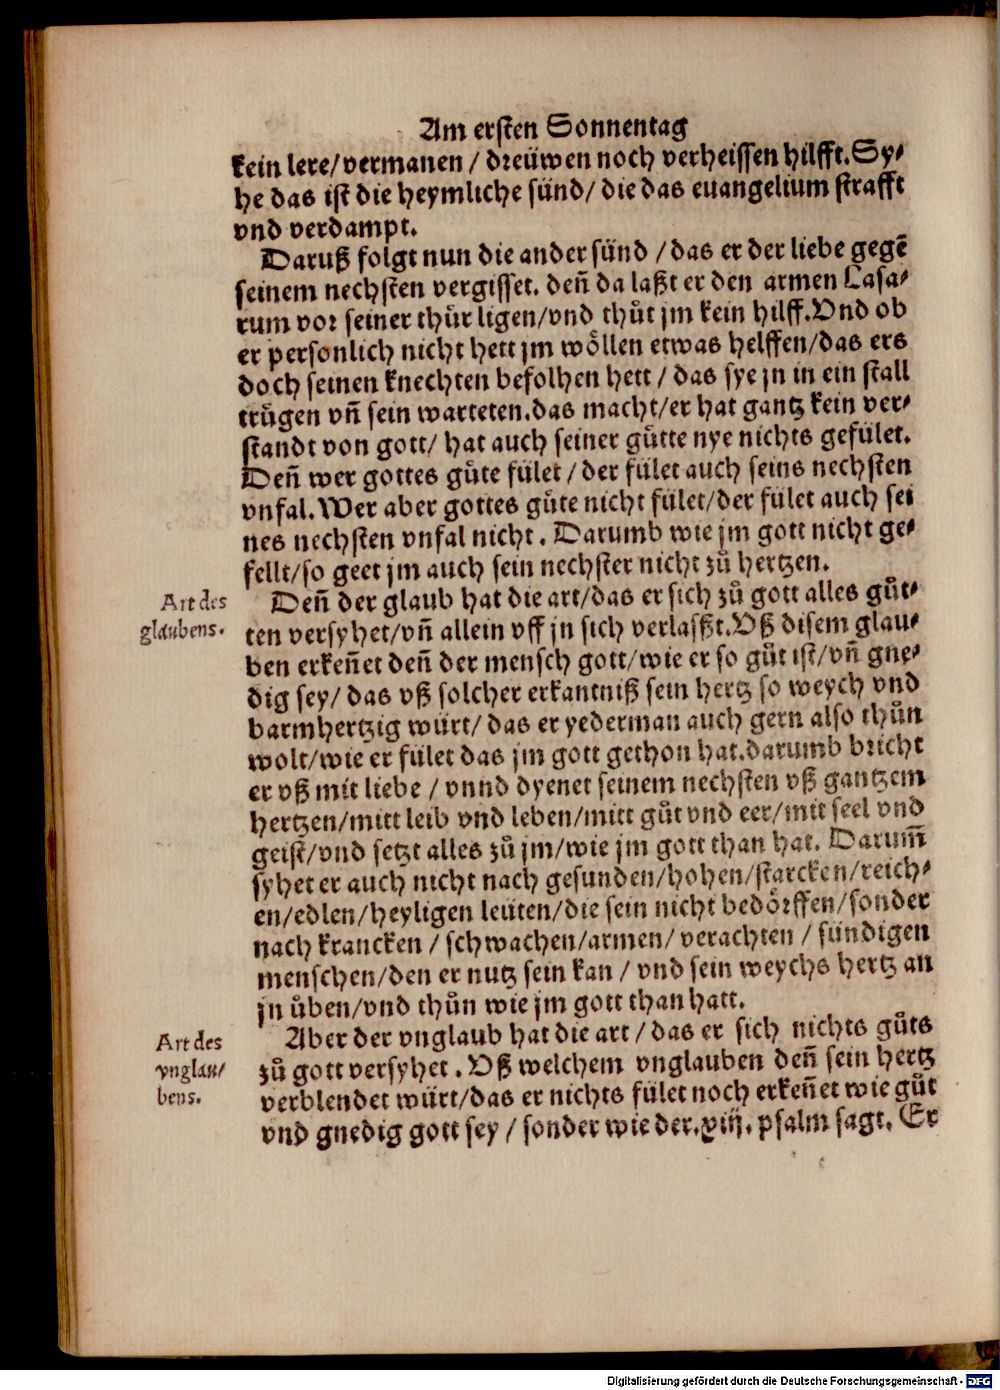 Am ersten Sonnentag
kein lere/vermanen / dreüwen noch verheissen hilfft. Sy-
he das ist die heymliche sünd/ die das euangelium strafft
vnd verdampt.
Daruß folgt nun die ander sünd / das er der liebe gegē
seinem nechsten vergisset. deñ da laßt er den armen Lasa-
rum vor seiner thür ligen/vnd thůt jm kein hilff. Vnd ob
er personlich nicht hett jm wöllen etwas helffen/das ers
doch seinen knechten befolhen hett / das sye jn in ein stall
trůgen vñ sein warteten. das macht/er hat gantz kein ver-
standt von gott/ hat auch seiner gůtte nye nichts gefület.
Deñ wer gottes gůte fület / der fület auch seins nechsten
vnfal. Wer aber gottes gůte nicht fület/der fület auch sei
nes nechsten vnfal nicht. Darumb wie jm gott nicht ge-
fellt/so geet jm auch sein nechster nicht zů hertzen.
Art des
glaubens.
Deñ der glaub hat die art/das er sich zů gott alles gůt-
ten versyhet/vñ allein vff jn sich verlaßt. Vß disem glau-
ben erkeñet deñ der mensch gott/wie er so gůt ist/vñ gne-
dig sey/ das vß solcher erkantniß sein hertz so weych vnd
barmhertzig würt/ das er yederman auch gern also thůn
wolt/wie er fület das jm gott gethon hat. darumb bricht
er vß mit liebe / vnnd dyenet seinem nechsten vß gantzem
hertzen/mitt leib vnd leben/mitt gůt vnd eer/mit seel vnd
geist/vnd setzt alles zů jm/wie jm gott than hat. Darum̃
syhet er auch nicht nach gesunden/hohen/starcken/reich-
en/edlen/heyligen leüten/die sein nicht bedörffen/sonder
nach krancken / schwachen/armen/ verachten / sündigen
menschen/den er nutz sein kan / vnd sein weychs hertz an
jn ůben/vnd thůn wie jm gott than hatt.
Art des
vnglau/
bens.
Aber der vnglaub hat die art / das er sich nichts gůts
zů gott versyhet. Vß welchem vnglauben deñ sein hertz
verblendet würt/das er nichts fület noch erkeñet wie gůt
vnd gnedig gott sey / sonder wie der. xiij. psalm sagt. Er
Digitalisierung gefördert durch die Deutsche Forschungsgemeinschaft - DFG